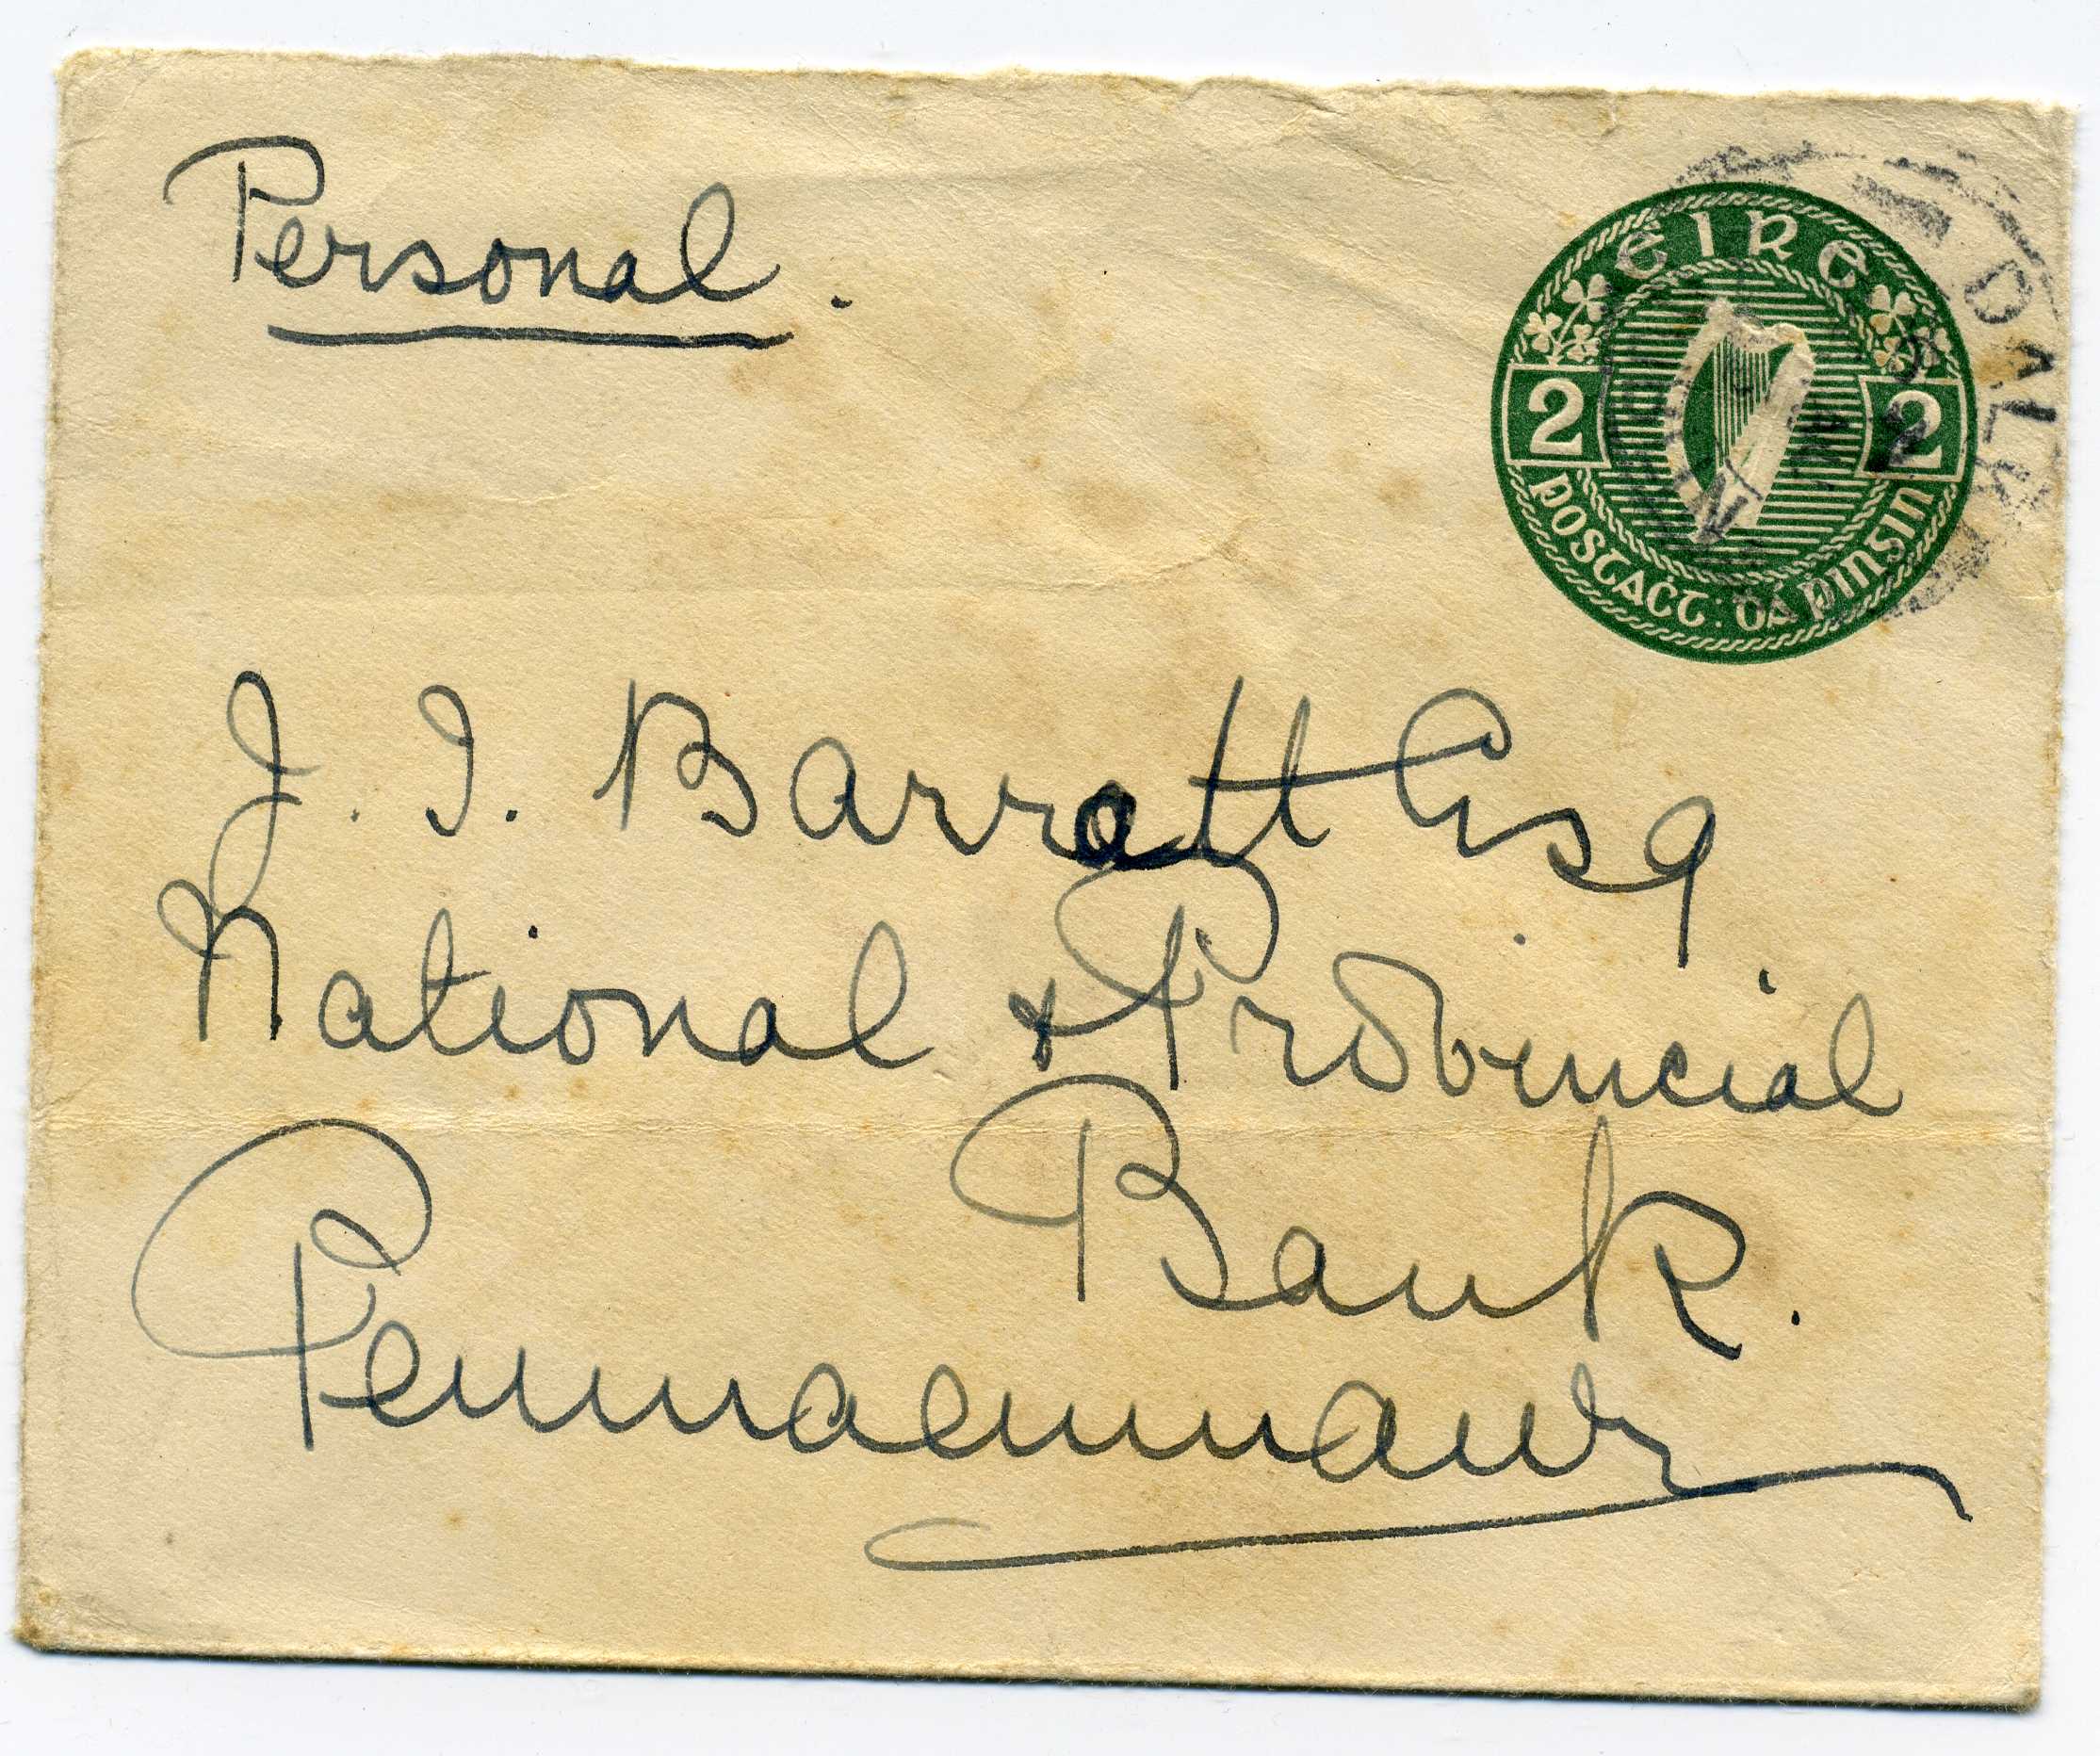 Personal.
eire
2 2
postaċt: dá pinsin
DALK
J. I. Barratt Esq
National & Provincial
Bank.
Penmaenmawr